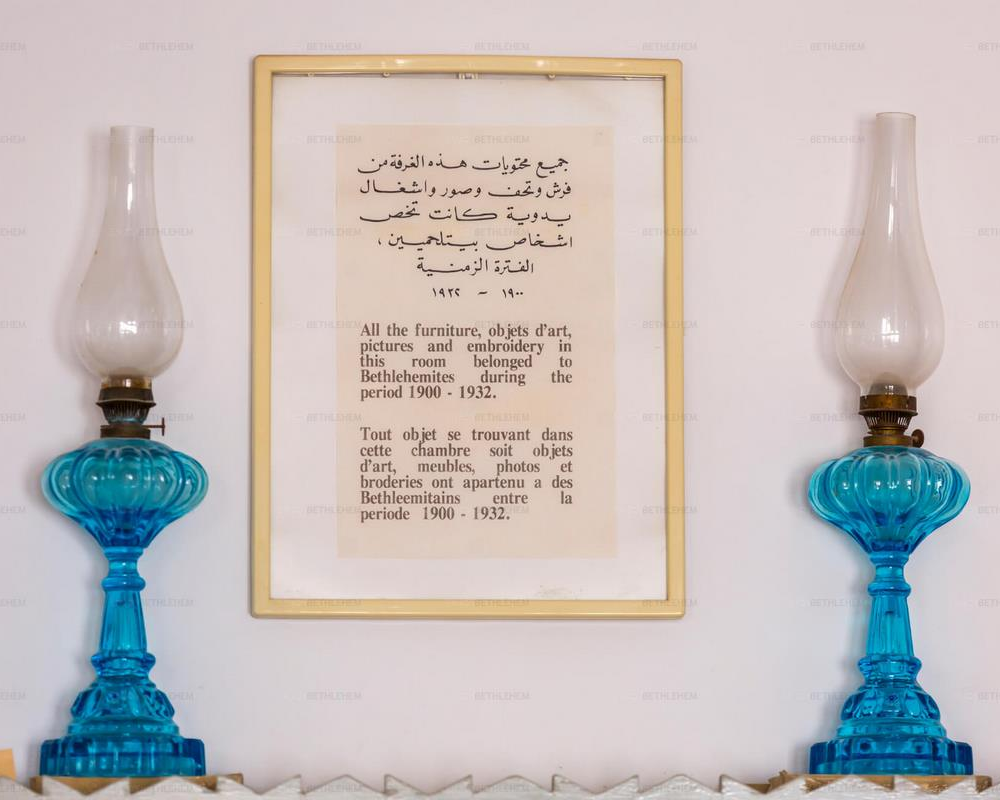 جميع محتويات هذه الغرفة من
فرش وتحف وصور واشغال
يدوية كانت تخص
اشخاص بيتلحميين ،
الفترة الزمنية
١٩٠٠ ~ ١٩٣٢
All the furniture, objets d'art,
pictures and embroidery in
this room belonged to
Bethlehemites during the
period 1900 - 1932.
Tout objet se trouvant dans
cette chambre soit objets
d'art, meubles, photos et
broderies ont apartenu a des
Bethleemitains entre la
periode 1900 - 1932.
BETHLEHEM